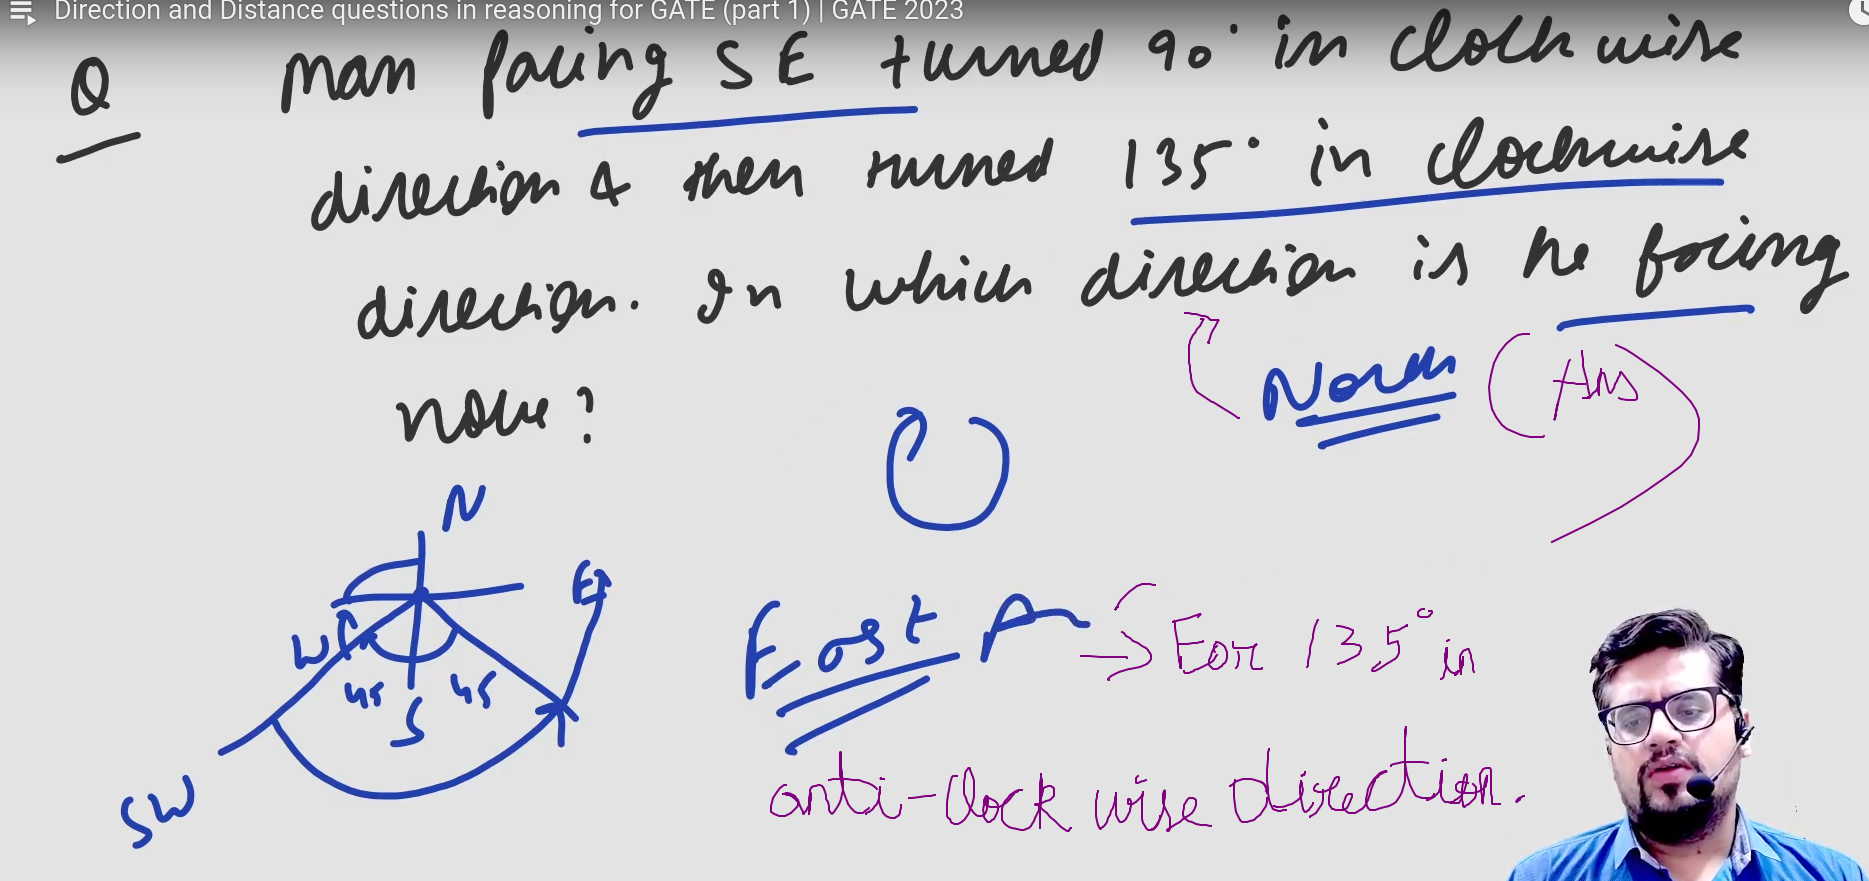 Direction and Distance questions in reasoning for GATE (part 1) | GATE 2023
Q Man facing SE turned 90° in clockwise
direction & then turned 135° in clockwise
direction. In which direction is he facing
now?
North (Ans)
N
E
W
45 S 45
SW
East → For 135° in
anti-clock wise direction.